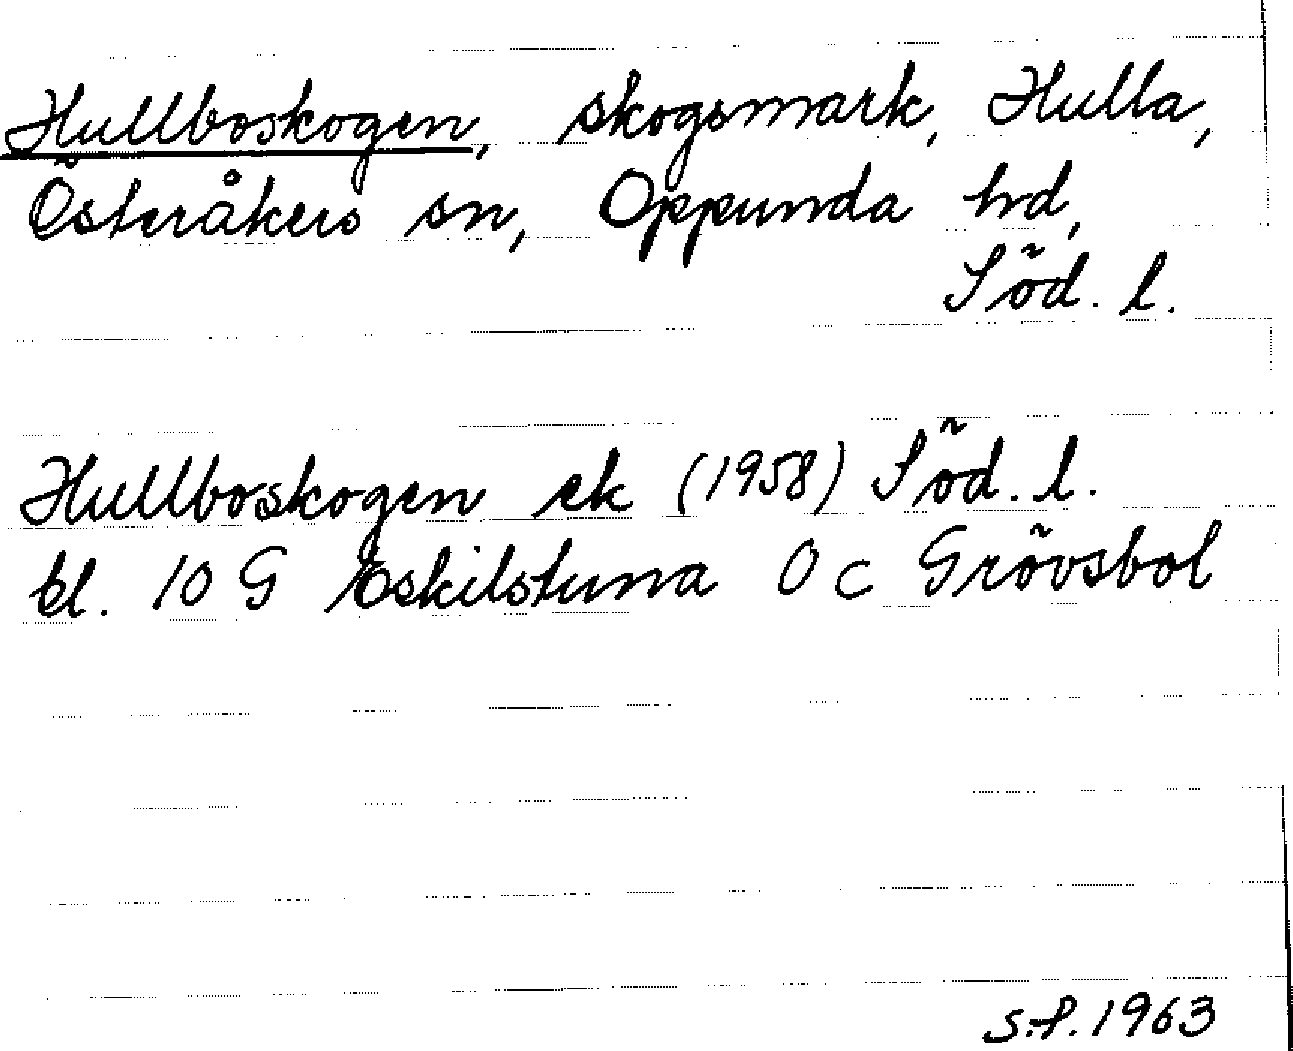 Hullboskogen, skogsmark, Hulla,
Österåkers sn, Oppunda hd,
Söd. l.
Hullboskogen ek (1958) Söd. l.
bl. 10 G Eskilstuna 0 c Grövsbol
S.P. 1963